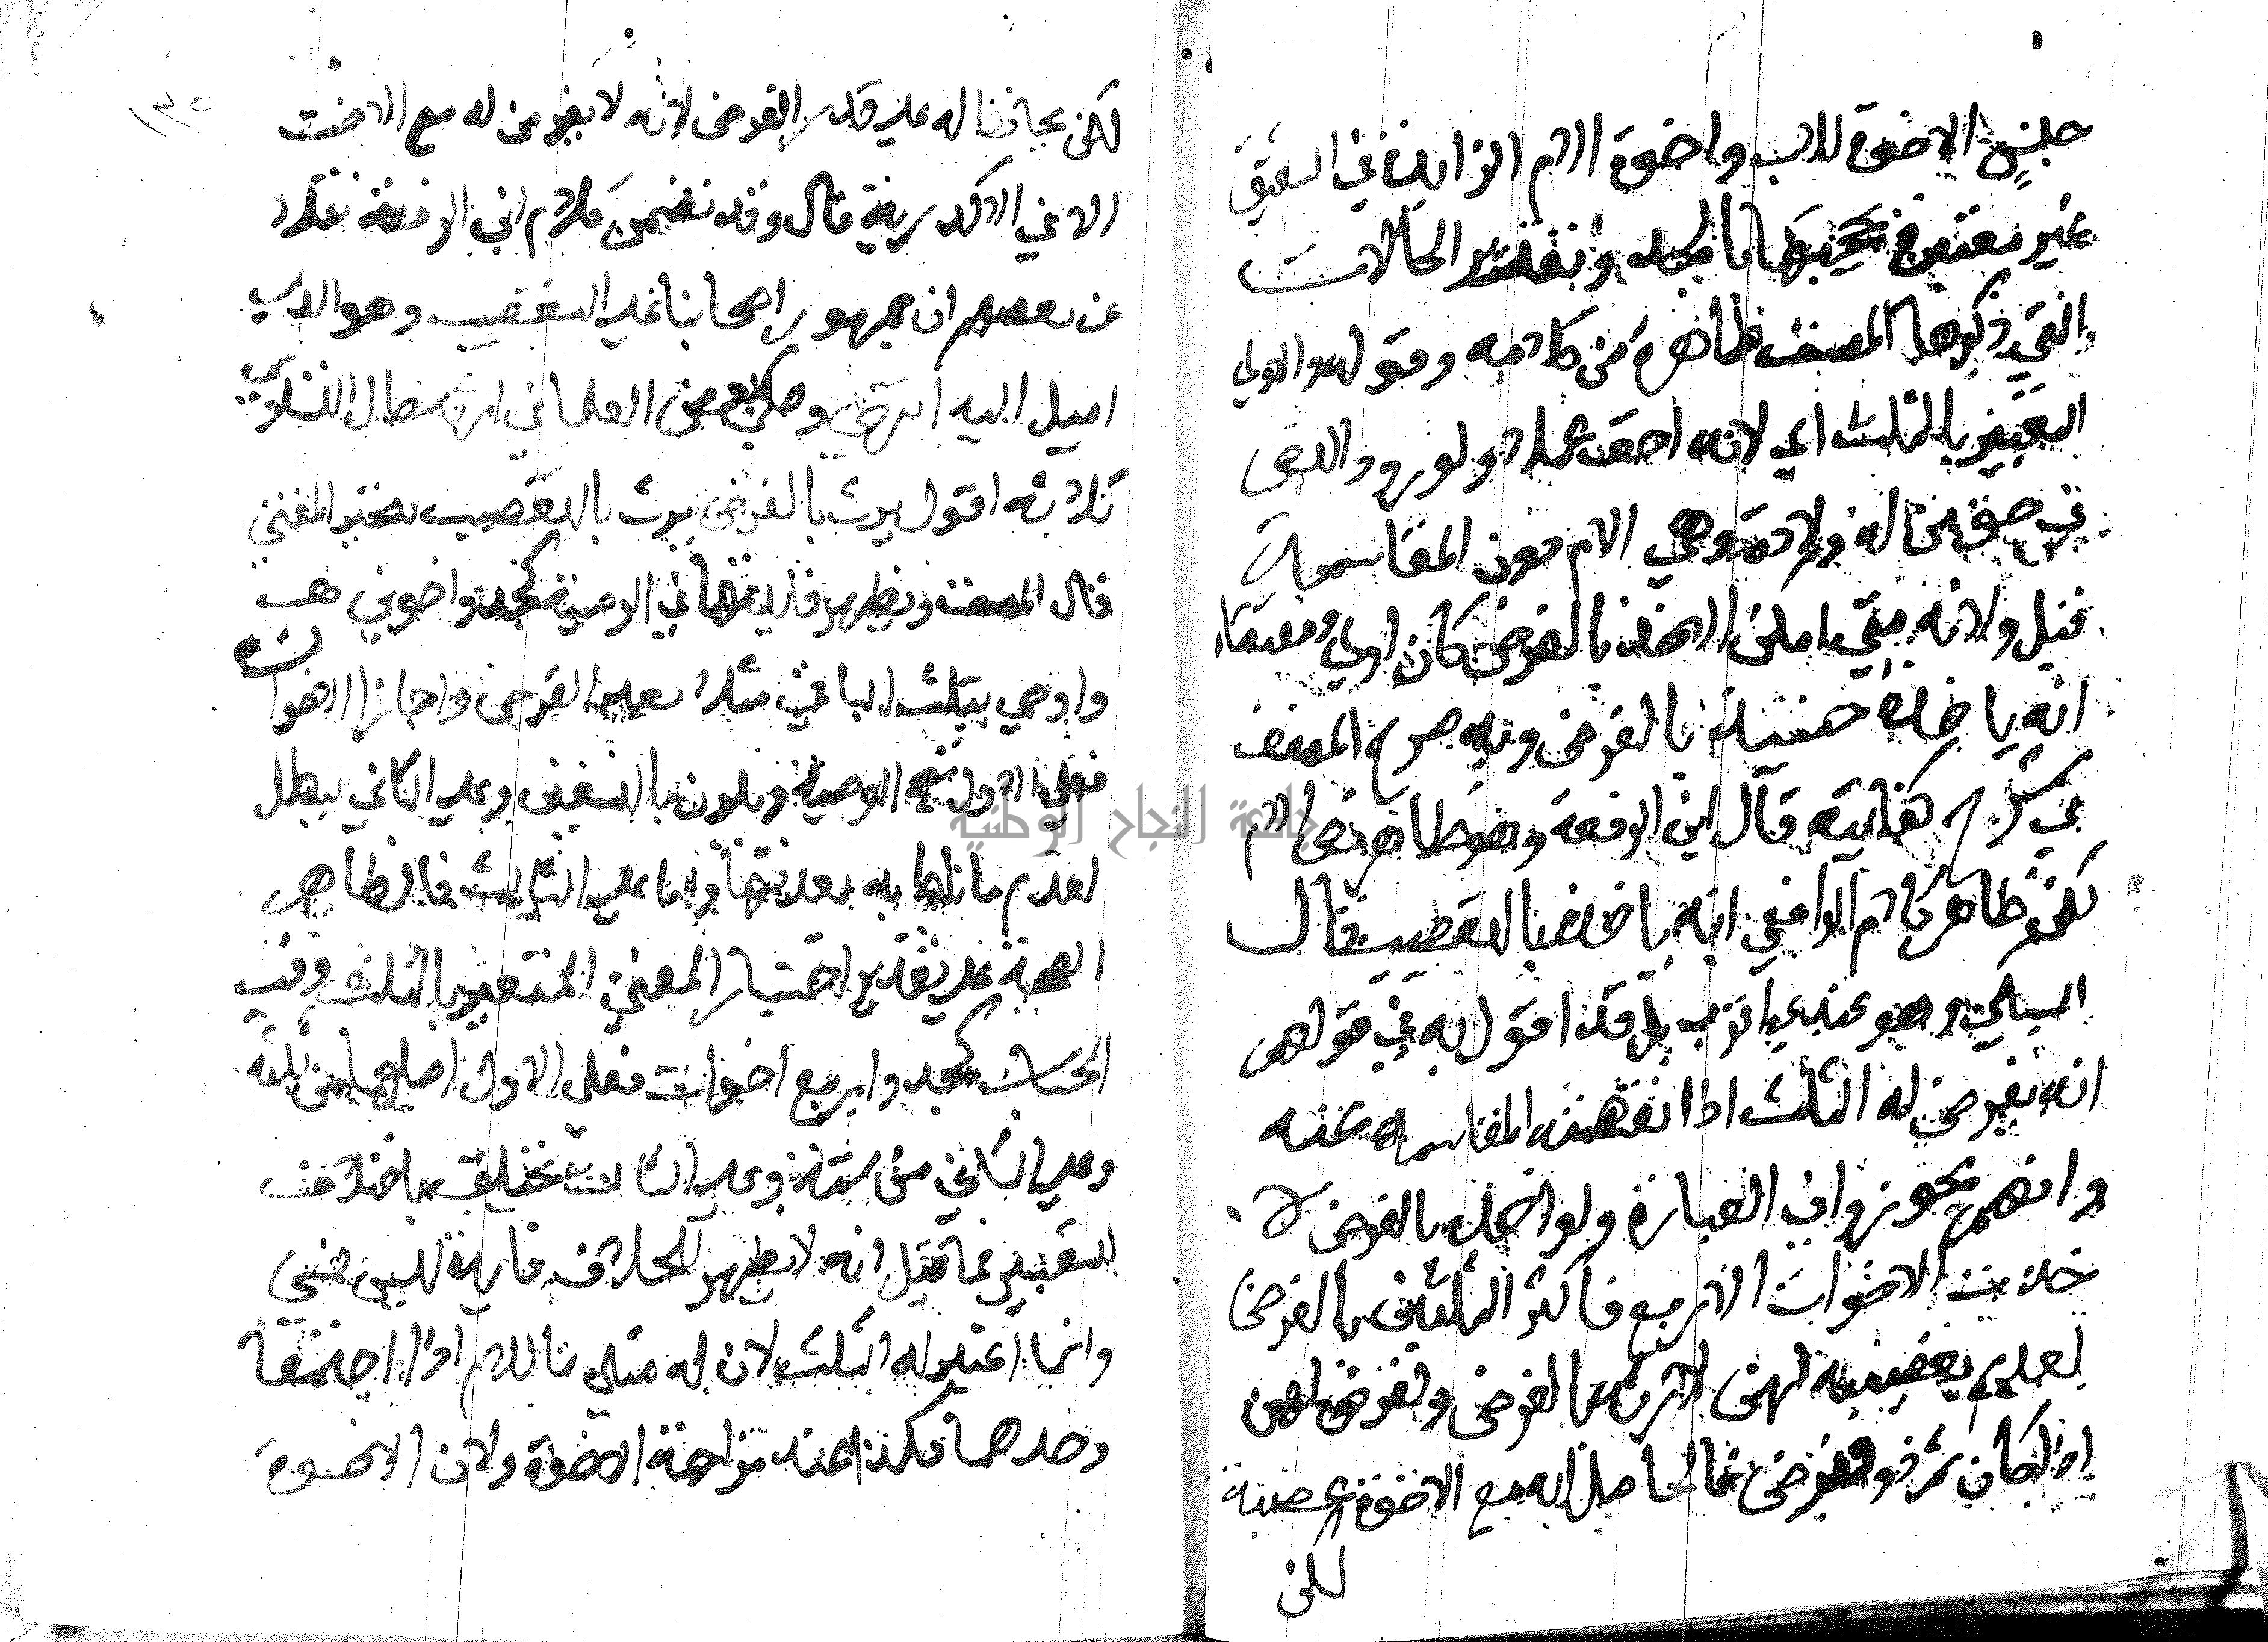 جنس الاخوة للاب واخوة الام الزايدة في الشقيق
غير معتبرة في حجبها بالجد وتفاصيل الحالات
التي ذكرها المصنف ظاهرة من كلامه وقوله والاولى
التعبير بالثلث اي لانه اخف عملا ولوروده النص
في حق من له ولادة وهي الام دون المقاسمة
قيل ولانه متى امكن الاخذ بالفرض كان اولى ومقتضاه
انه ياخذه حينيذ بالفرض وبه صرح المصنف
في شرح كفايته قال ابن الرفعة وهو ظاهر نص الام
لكن ظاهر كلام الرافعي انه ياخذه بالتعصيب قال
السبكي وهو عندي اقرب بل قد اقول به في قولهم
انه يفرض له الثلث اذا نقصته المقاسمة عنه
وانهم تجوزوا في العبارة ولو اخذ بالفرض لا
خذت الاخوات الاربع فاكثر الثلثين بالفرض
لعدم تعصيبه لهن لارثه بالفرض ولفرض لهن
اذا كان ثم ذو فرض فالحاصل انه مع الاخوة عصبة
لكن
١٣٥
لكن يحافظ له على قدر الفرض لانه لا يفرض له مع الاخت
الا في الاكدرية قال وقد تضمن كلام ابن الرفعة نقلا
عن بعضهم ان جمهور اصحابنا على التعصيب وهو الذي
اميل اليه انتهى وحكي بعض العلما في ارثه حال التساوي
ثلاثه اقول يرث بالفرض يرث بالتعصيب يتخير المفتي
قال المصنف وتظهر فايدتها في الوصية كجد واخوين هب
واوصى بثلث الباقي مثلا بعد الفرض واجازا الاخوان
فعلى الاول تصح الوصية وتكون بالتسعين وعلى الثاني تبطل
لعدم ما ناطها به بعد فرضها واما على الثالث فالظاهر
الصحة على تقدير اختيار المفتي التعبير بالثلث وفي
الحساب كجد واربع اخوات فعلى الاول اصلها من ثلثه
وعلى الثاني من ستة وعلى الثالث يختلف باختلاف
التعبير فما قيل انه لا يظهر للخلاف فايدة ليس بشي
وانما اعتبر له الثلث لان له مثلي ما للام اذا اجتمعا
وحدهما فكذا عند مزاحمة الاخوة ولان الاخوة
جامعة النجاح الوطنية